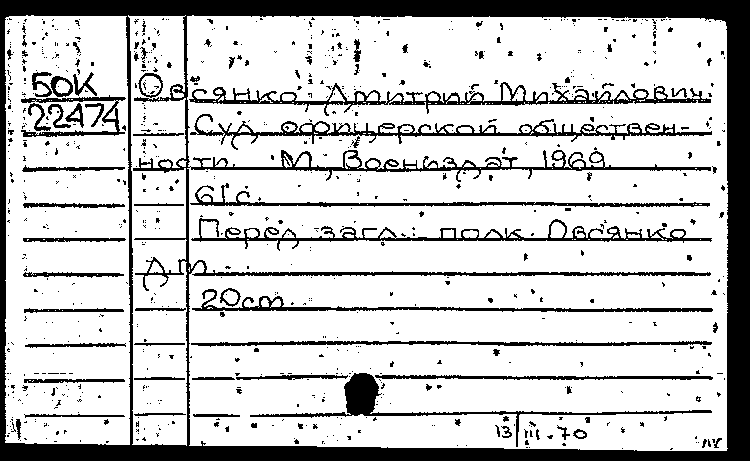 БОК
22474
Овсянко, Дмитрий Михайлович.
Суд офицерской обществен-
ности. М., Воениздат, 1969.
61 с.
Перед загл.: полк. Овсянко
Д.М.
20 cm.
13 III-70